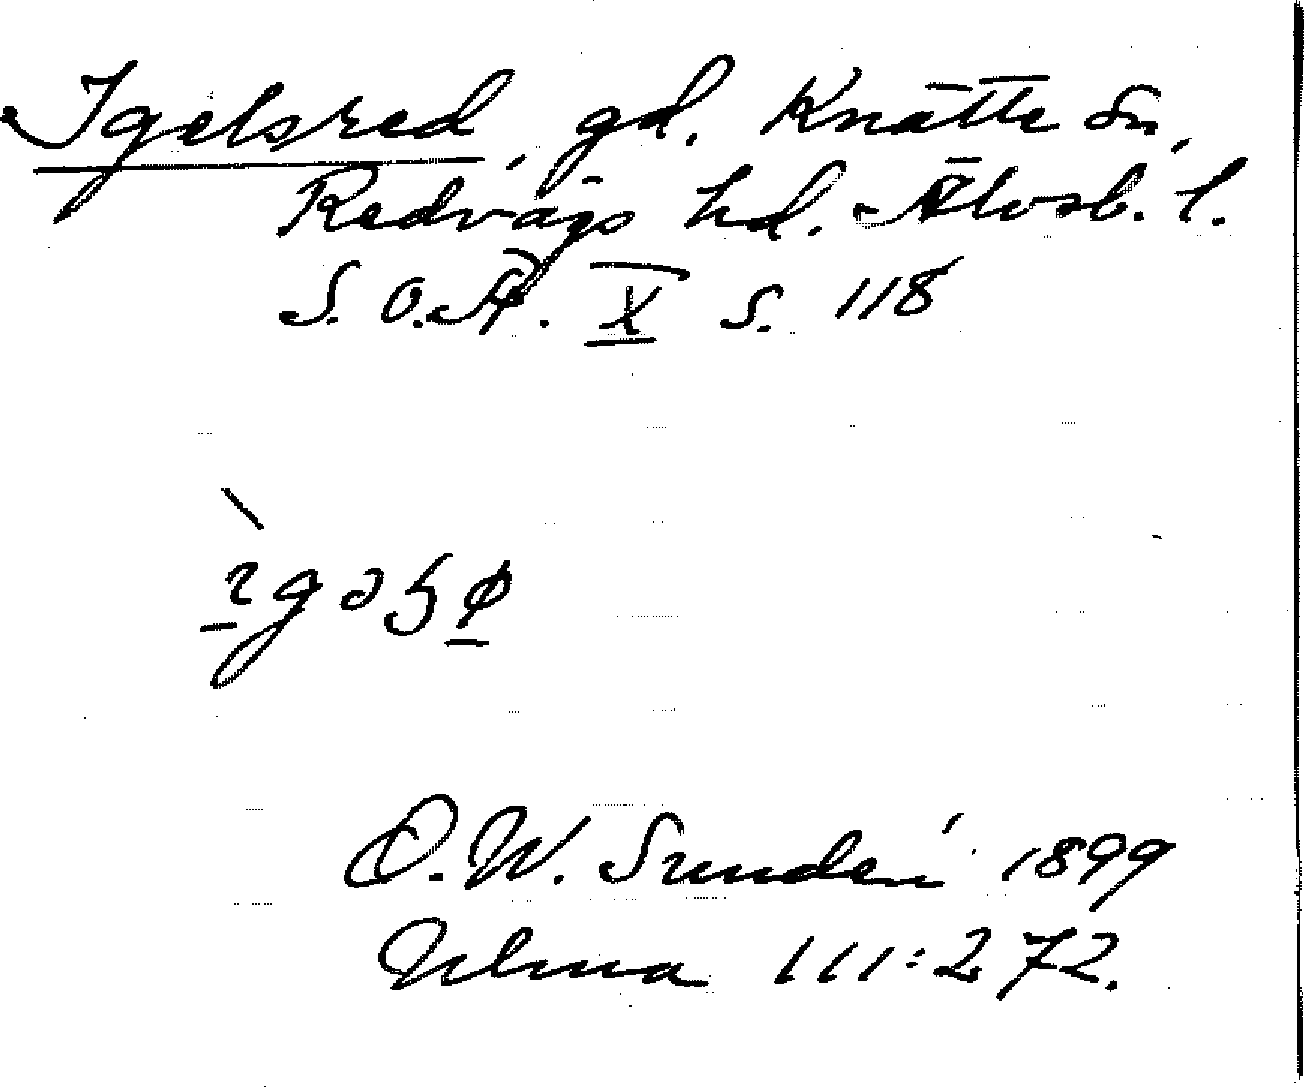 Igelsred, gd. Knätte sn,
Redvägs hd. Älvsb. l.
S. O. Ä. X s. 118
D. W. Sundén 1899
Ulma 111:272.